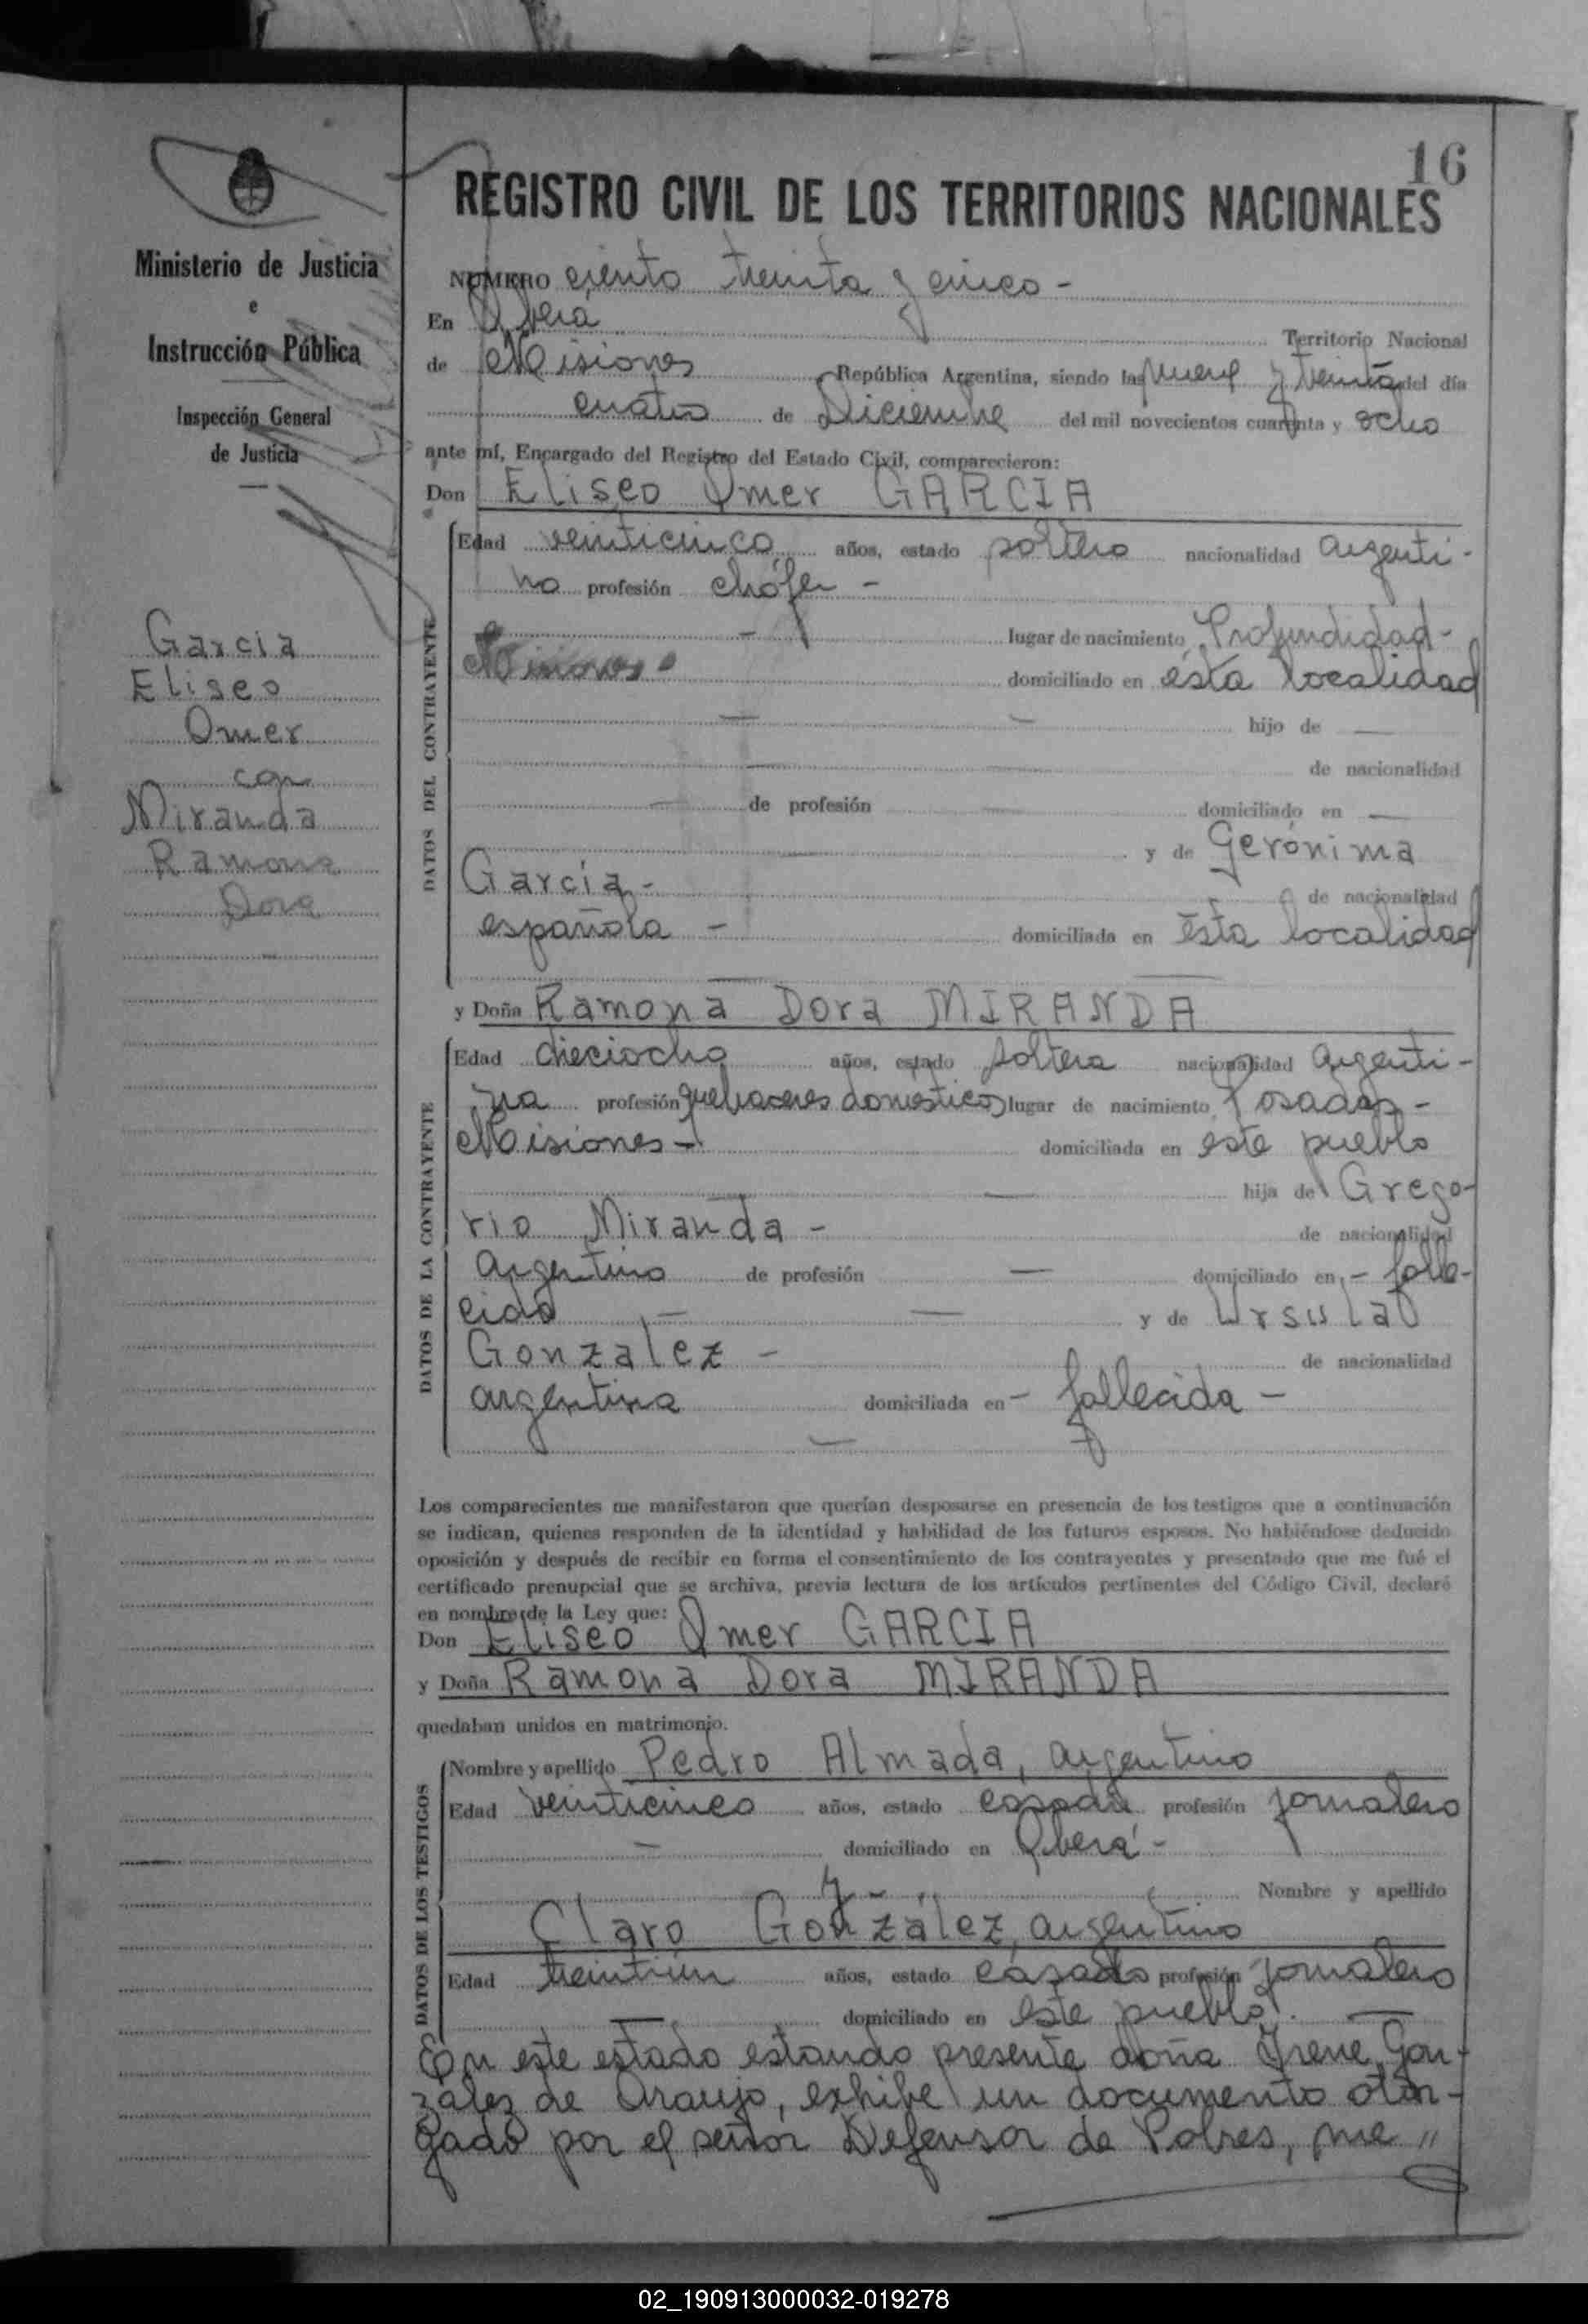 16
REGISTRO CIVIL DE LOS TERRITORIOS NACIONALES
Ministerio de Justicia
e
Instrucción Pública
Inspección General
de Justicia
García
Eliseo
Omer
con
Miranda
Ramona
Dora
NUMERO ciento treinta y cinco -
En Oberá
Territorio Nacional
de Misiones República Argentina, siendo las nueve y treinta del día
cuatro de Diciembre del mil novecientos cuarenta y ocho
ante mí, Encargado del Registro del Estado Civil, comparecieron:
Don Eliseo Omer GARCIA
DATOS DEL CONTRAYENTE
Edad veinticinco años, estado soltero nacionalidad argenti-
no profesión chófer -
- lugar de nacimiento Profundidad-
Misiones- domiciliado en ésta localidad
— — hijo de —
— — de nacionalidad
— de profesión — domiciliado en —
— y de Gerónima
García- de nacionalidad
española - domiciliada en ésta localidad
— —
y Doña Ramona Dora MIRANDA
DATOS DE LA CONTRAYENTE
Edad dieciocho años, estado soltera nacionalidad argenti-
na profesión quehaceres domésticos lugar de nacimiento Posadas-
Misiones- domiciliada en éste pueblo
— — hija de Grego-
rio Miranda - de nacionalidad
argentino de profesión — domiciliado en - falle-
cido — — y de Ursula
Gonzalez - de nacionalidad
argentina domiciliada en - fallecida -
—
Los comparecientes me manifestaron que querían desposarse en presencia de los testigos que a continuación
se indican, quienes responden de la identidad y habilidad de los futuros esposos. No habiéndose deducido
oposición y después de recibir en forma el consentimiento de los contrayentes y presentado que me fué el
certificado prenupcial que se archiva, previa lectura de los artículos pertinentes del Código Civil, declaré
en nombre de la Ley que:
Don Eliseo Omer GARCIA
y Doña Ramona Dora MIRANDA
quedaban unidos en matrimonio.
DATOS DE LOS TESTIGOS
Nombre y apellido Pedro Almada, argentino
Edad veinticinco años, estado casado profesión jornalero
— domiciliado en Oberá -
y - Nombre y apellido
Claro González, argentino
Edad treintiún años, estado casado profesión jornalero
— domiciliado en éste pueblo. —
En este estado estando presente doña Irene Gon-
zález de Araujo, exhibe un documento otor-
gado por el señor Defensor de Pobres, me "
02_190913000032-019278